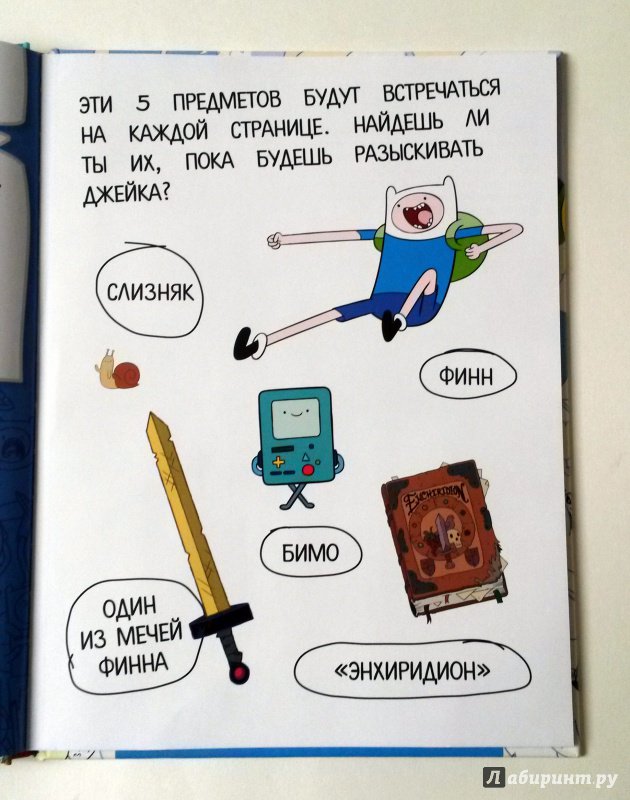 ЭТИ 5 ПРЕДМЕТОВ БУДУТ ВСТРЕЧАТЬСЯ
НА КАЖДОЙ СТРАНИЦЕ. НАЙДЕШЬ ЛИ
ТЫ ИХ, ПОКА БУДЕШЬ РАЗЫСКИВАТЬ
ДЖЕЙКА?
СЛИЗНЯК
ФИНН
ENCHIRIDION
БИМО
ОДИН
ИЗ МЕЧЕЙ
ФИННА
«ЭНХИРИДИОН»
Лабиринт.ру